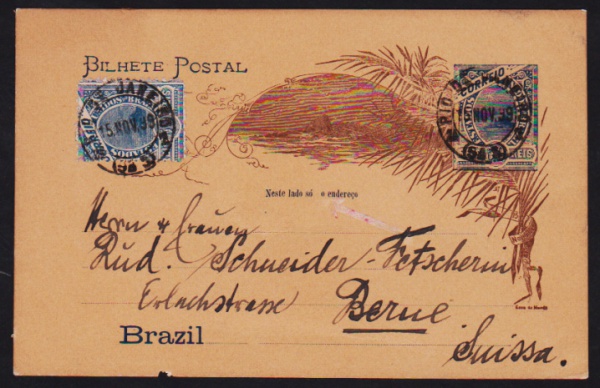 BILHETE POSTAL
RIO DE JANEIRO
15 NOV. 99
CORREIO
RIO DE JANEIRO
15 NOV. 99
REIS
Neste lado só o endereço
Herrn & Frauen
Rud. Schneider-Fetscherin
Erlachstrasse
Berne
Brazil
Suissa.